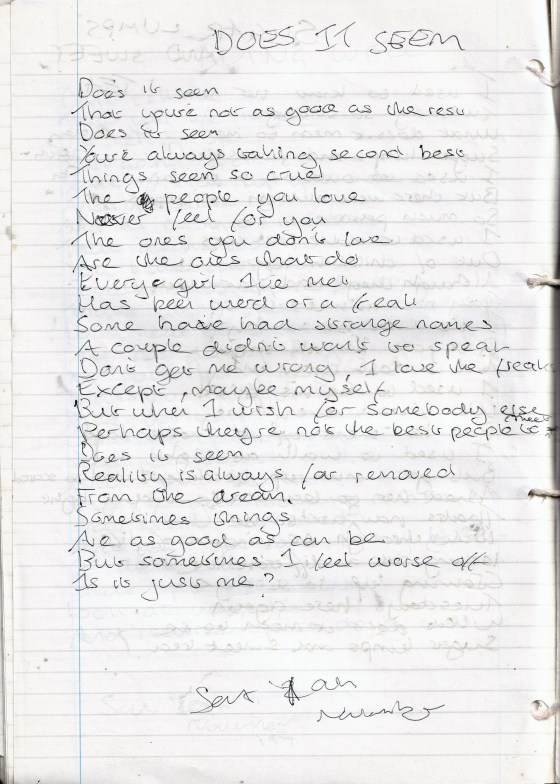 DOES IT SEEM
Does it seem
That you're not as good as the rest
Does it seem
You're always taking second best
Things seem so cruel
The people you love
Never feel for you
The ones you don't love
Are the ones that do
Every girl I've met
Has been weird or a freak
Some have had strange names
A couple didn't want to speak
Don't get me wrong, I love the freaks
Except, maybe myself
But when I wish for somebody else
Perhaps they're not the best people to meet
Does it seem
Reality is always far removed
From the dream.
Sometimes things
Are as good as can be
But sometimes I feel worse off
Is it just me?